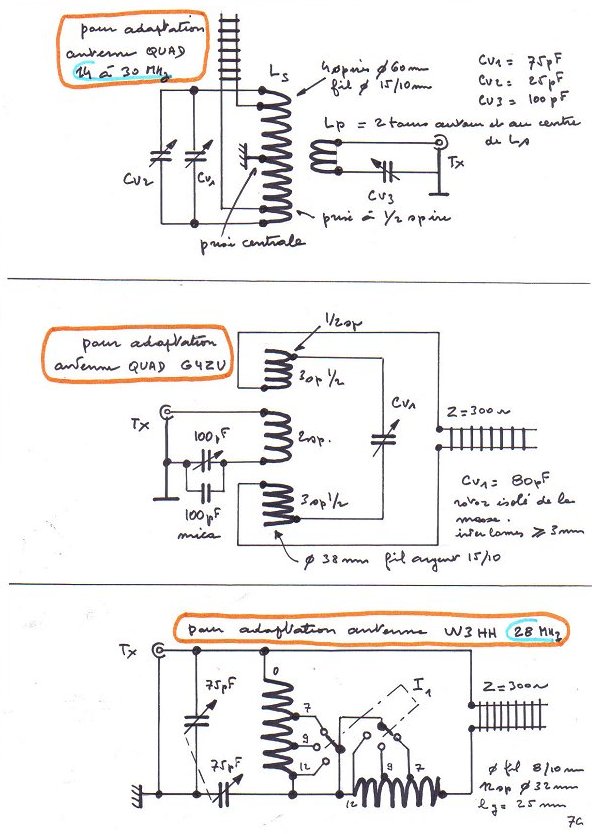 pour adaptation
antenne QUAD
14 à 30 MHz
Ls
φ 60mm
fil φ 15/10mm
CV1 = 75pF
CV2 = 25pF
CV3 = 100pF
Lp = 2 tours autour et au centre
de Ls
CV2
CV1
Tx
CV3
prise à 1/2 spire
prise centrale
pour adaptation
antenne QUAD G4ZU
1/2 sp
3sp 1/2
Tx
100pF
2sp.
CV1
Z=300Ω
100pF
mica
3sp 1/2
CV1 = 80pF
rotor isolé de la
masse.
interlames ⩾ 3mm
φ 38mm fil argent 15/10
pour adaptation antenne W3HH 28 MHz
Tx
0
75pF
7
9
12
I1
Z=300Ω
75pF
12
9
7
φ fil 8/10mm
12sp φ 32mm
lg = 25mm